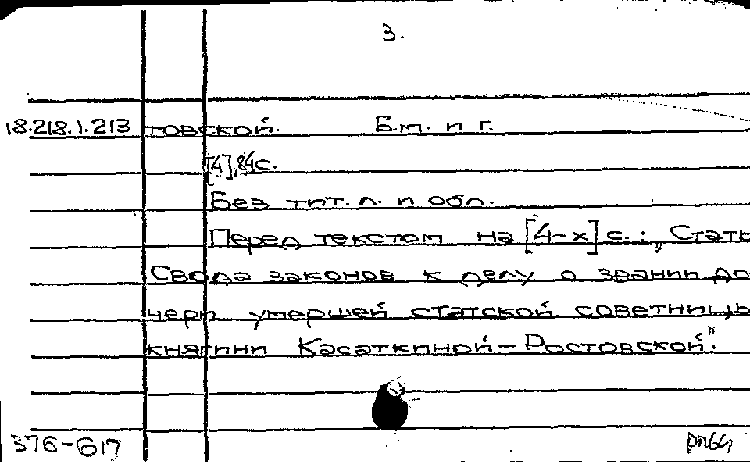 3.
18.218.1.213 товской. Б.м. и г.
[4], 84 с.
Без тит. л. и обл.
Перед текстом на [4-х] с.: „Стать
Свода законов к делу о звании до
чери умершей статской советницы
княгини Касаткиной-Ростовской".
376-617